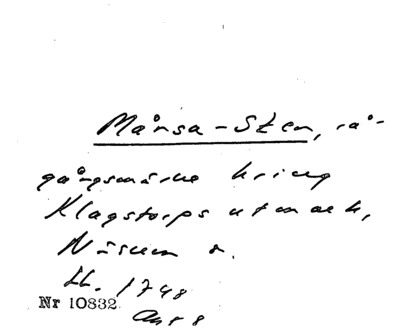 Månsa-Sten, rå-
gångsmärke kring
Klagstorps utmark,
Näsum s.
Lb. 1748
Nr 10832